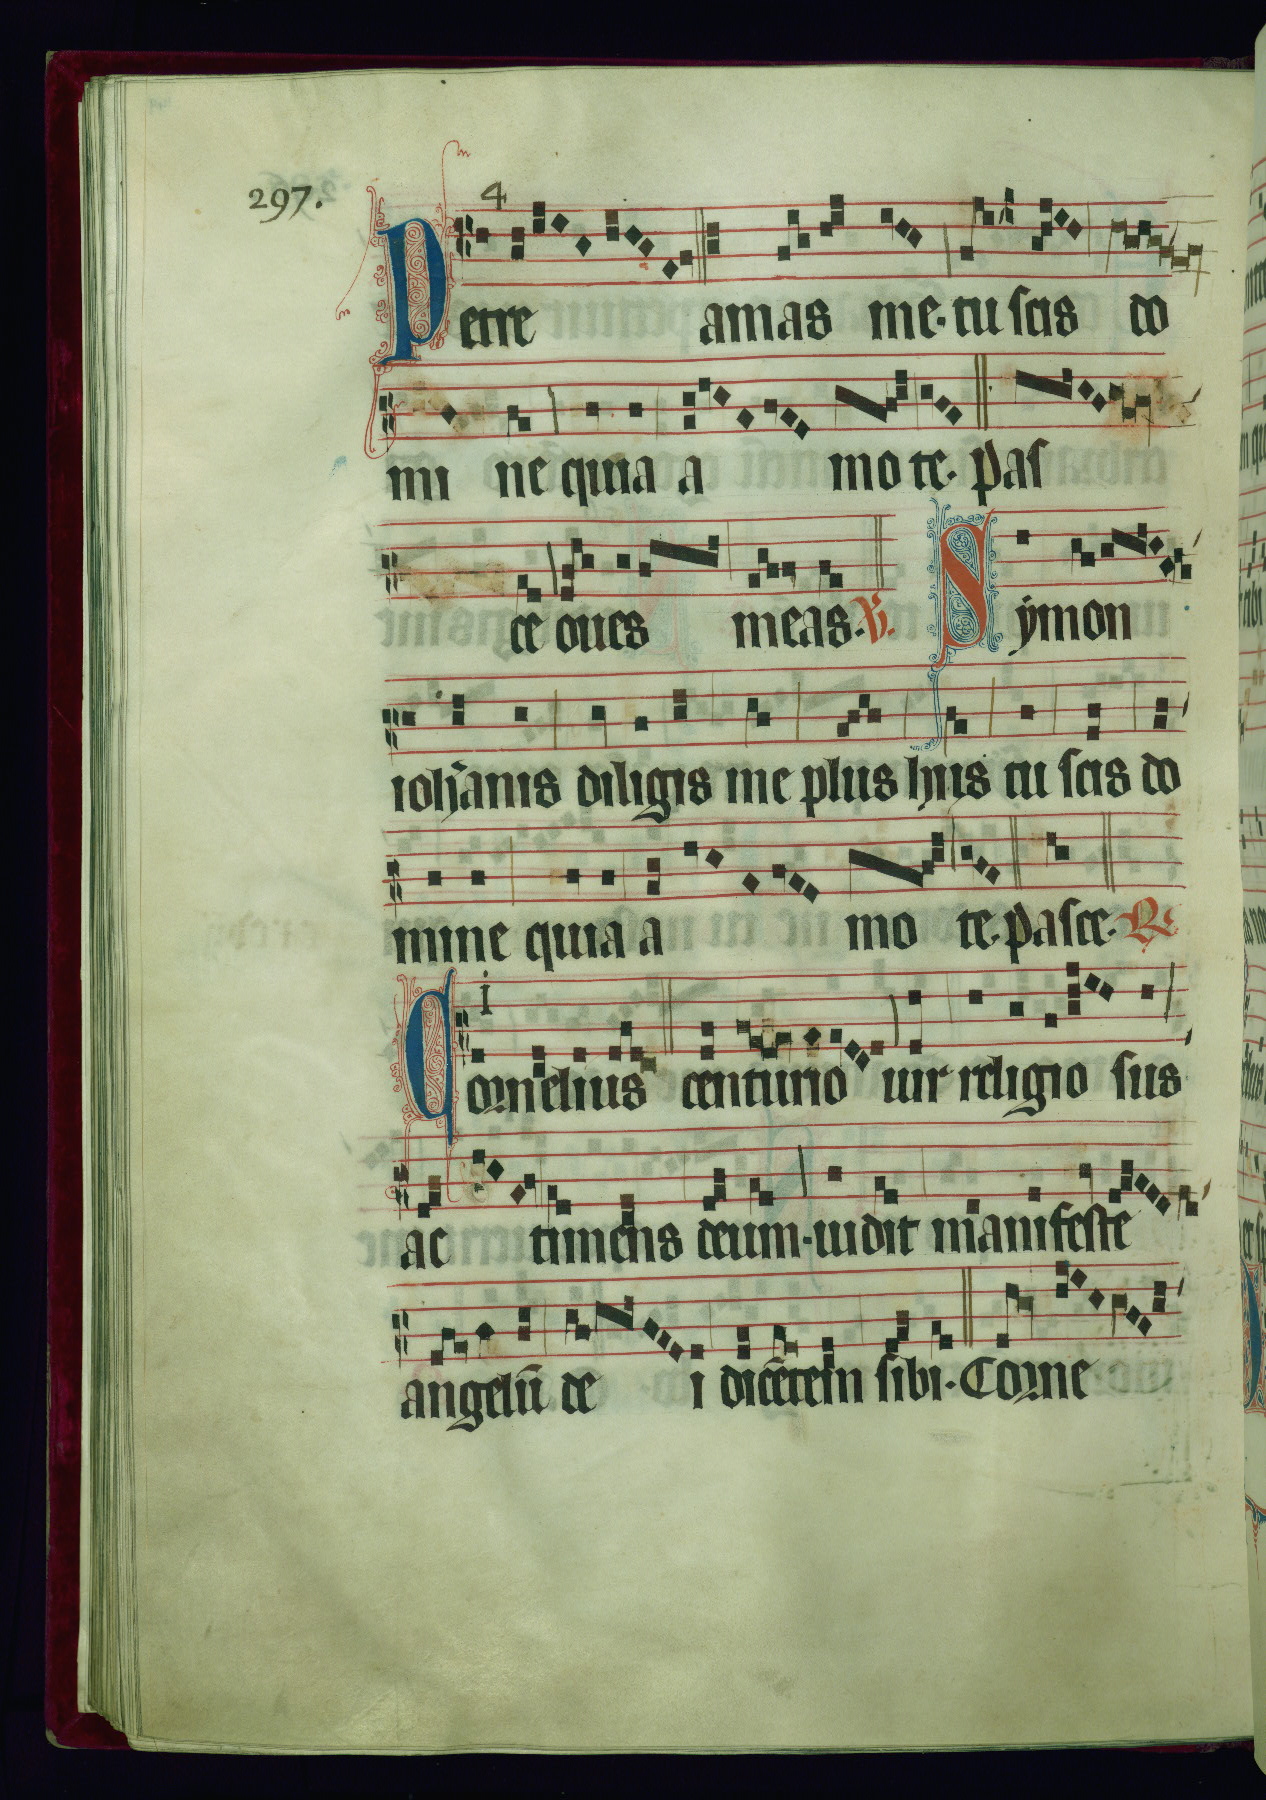 297.
4
Petre amas me. tu scis do
mi ne quia a mo te. pas
ce oues meas. V. Symon
ioh̄anis diligis me plus hiis tu scis do
mine quia a mo te. pasce. R
i
Cornelius centurio uir religio sus
ac timens deum. uidit manifeste
angelū de i dicētem sibi. Corne